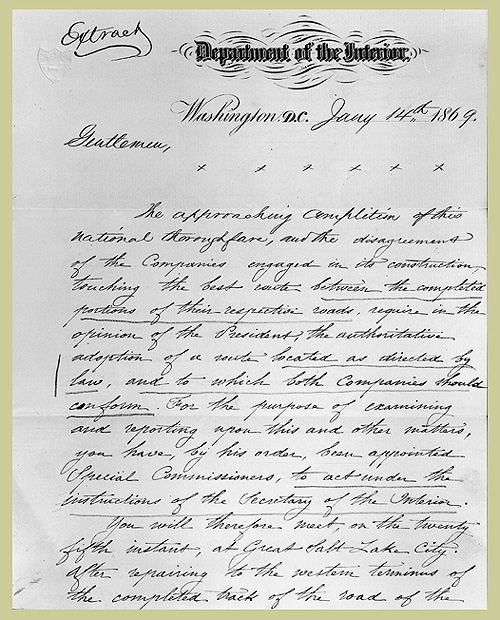 Extract
Department of the Interior,
Washington D.C. Jany 14th 1869.
Gentlemen,
x x x x x x
The approaching completion of this
national thoroughfare, and the disagreement
of the Companies engaged in its construction,
touching the best route between the completed
portions of their respective roads, require in the
opinion of the President, the authoritative
adoption of a route located as directed by
law, and to which both Companies should
conform. For the purpose of examining
and reporting upon this and other matters,
you have, by his order, been appointed
Special Commissioners, to act under the
instructions of the Secretary of the Interior.
You will therefore meet, on the twenty
fifth instant, at Great Salt Lake City
after repairing to the western terminus of
the completed track of the road of the